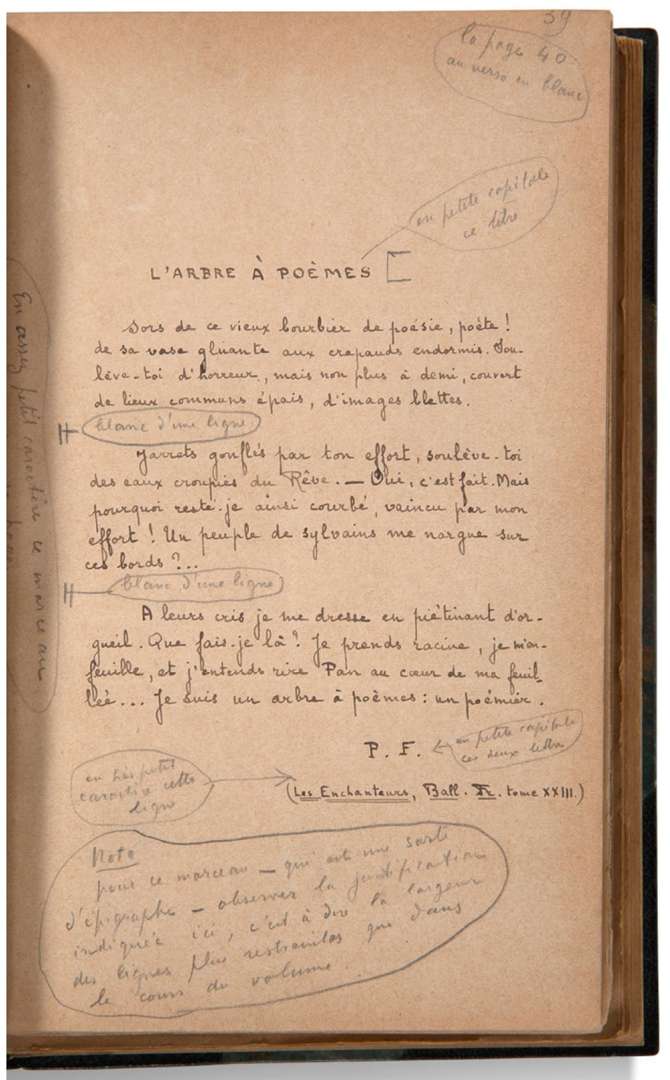 39
la page 40
au verso en blanc
en petite capitale
ce titre
L'ARBRE À POÈMES
Sors de ce vieux bourbier de poésie, poète !
de sa vase gluante aux crapauds endormis. Sou-
lève-toi d'horreur, mais non plus à demi, couvert
de lieux communs épais, d'images blettes.
blanc d'une ligne
Jarrets gonflés par ton effort, soulève-toi
des eaux croupies du Rêve. — Oui, c'est fait. Mais
pourquoi resté-je ainsi courbé, vaincu par mon
effort ! Un peuple de sylvains me nargue sur
ces bords ?...
blanc d'une ligne
A leurs cris je me dresse en piétinant d'or-
gueil. Que fais-je là ? Je prends racine, je m'en-
feuille, et j'entends rire Pan au cœur de ma feuil-
lée... Je suis un arbre à poèmes : un poémier.
P. F.
en petite capitale
ces deux lettres
en très petit
caractère cette
ligne
(Les Enchanteurs, Ball. Fr. tome XXIII.)
Nota
pour ce morceau — qui est une sorte
d'épigraphe — observer la justification
indiquée ici, c'est à dire la largeur
des lignes plus restreintes que dans
le cours du volume.
En assez petit caractère ce morceau